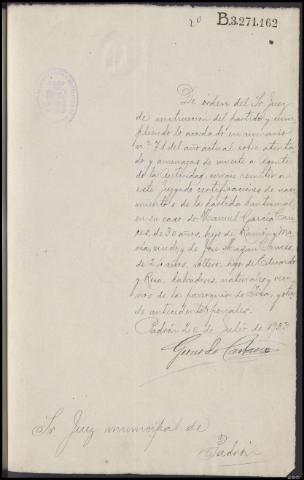 20
B.3.271.162
De orden del Sr. Juez
de instrucción del partido y cum-
pliendo lo acordado en sumario
nº 71 del año actual sobre atenta-
do y amenazas de muerte a agente
de la autoridad, sirvase remitir a
este Juzgado certificaciones de naci-
mientos o de la partida bautismal
en su caso, de Manuel García
de 30 años, hijo de Ramón y Ma-
ría, viudo, y de José
de 24 años, soltero, hijo de Eduardo
y Rosa, labradores, naturales y veci-
nos de la parroquia de Iria, y otra
de antecedentes penales.
Padrón 20 de Julio de 1903
Gerardo
Sr. Juez municipal de
Padrón